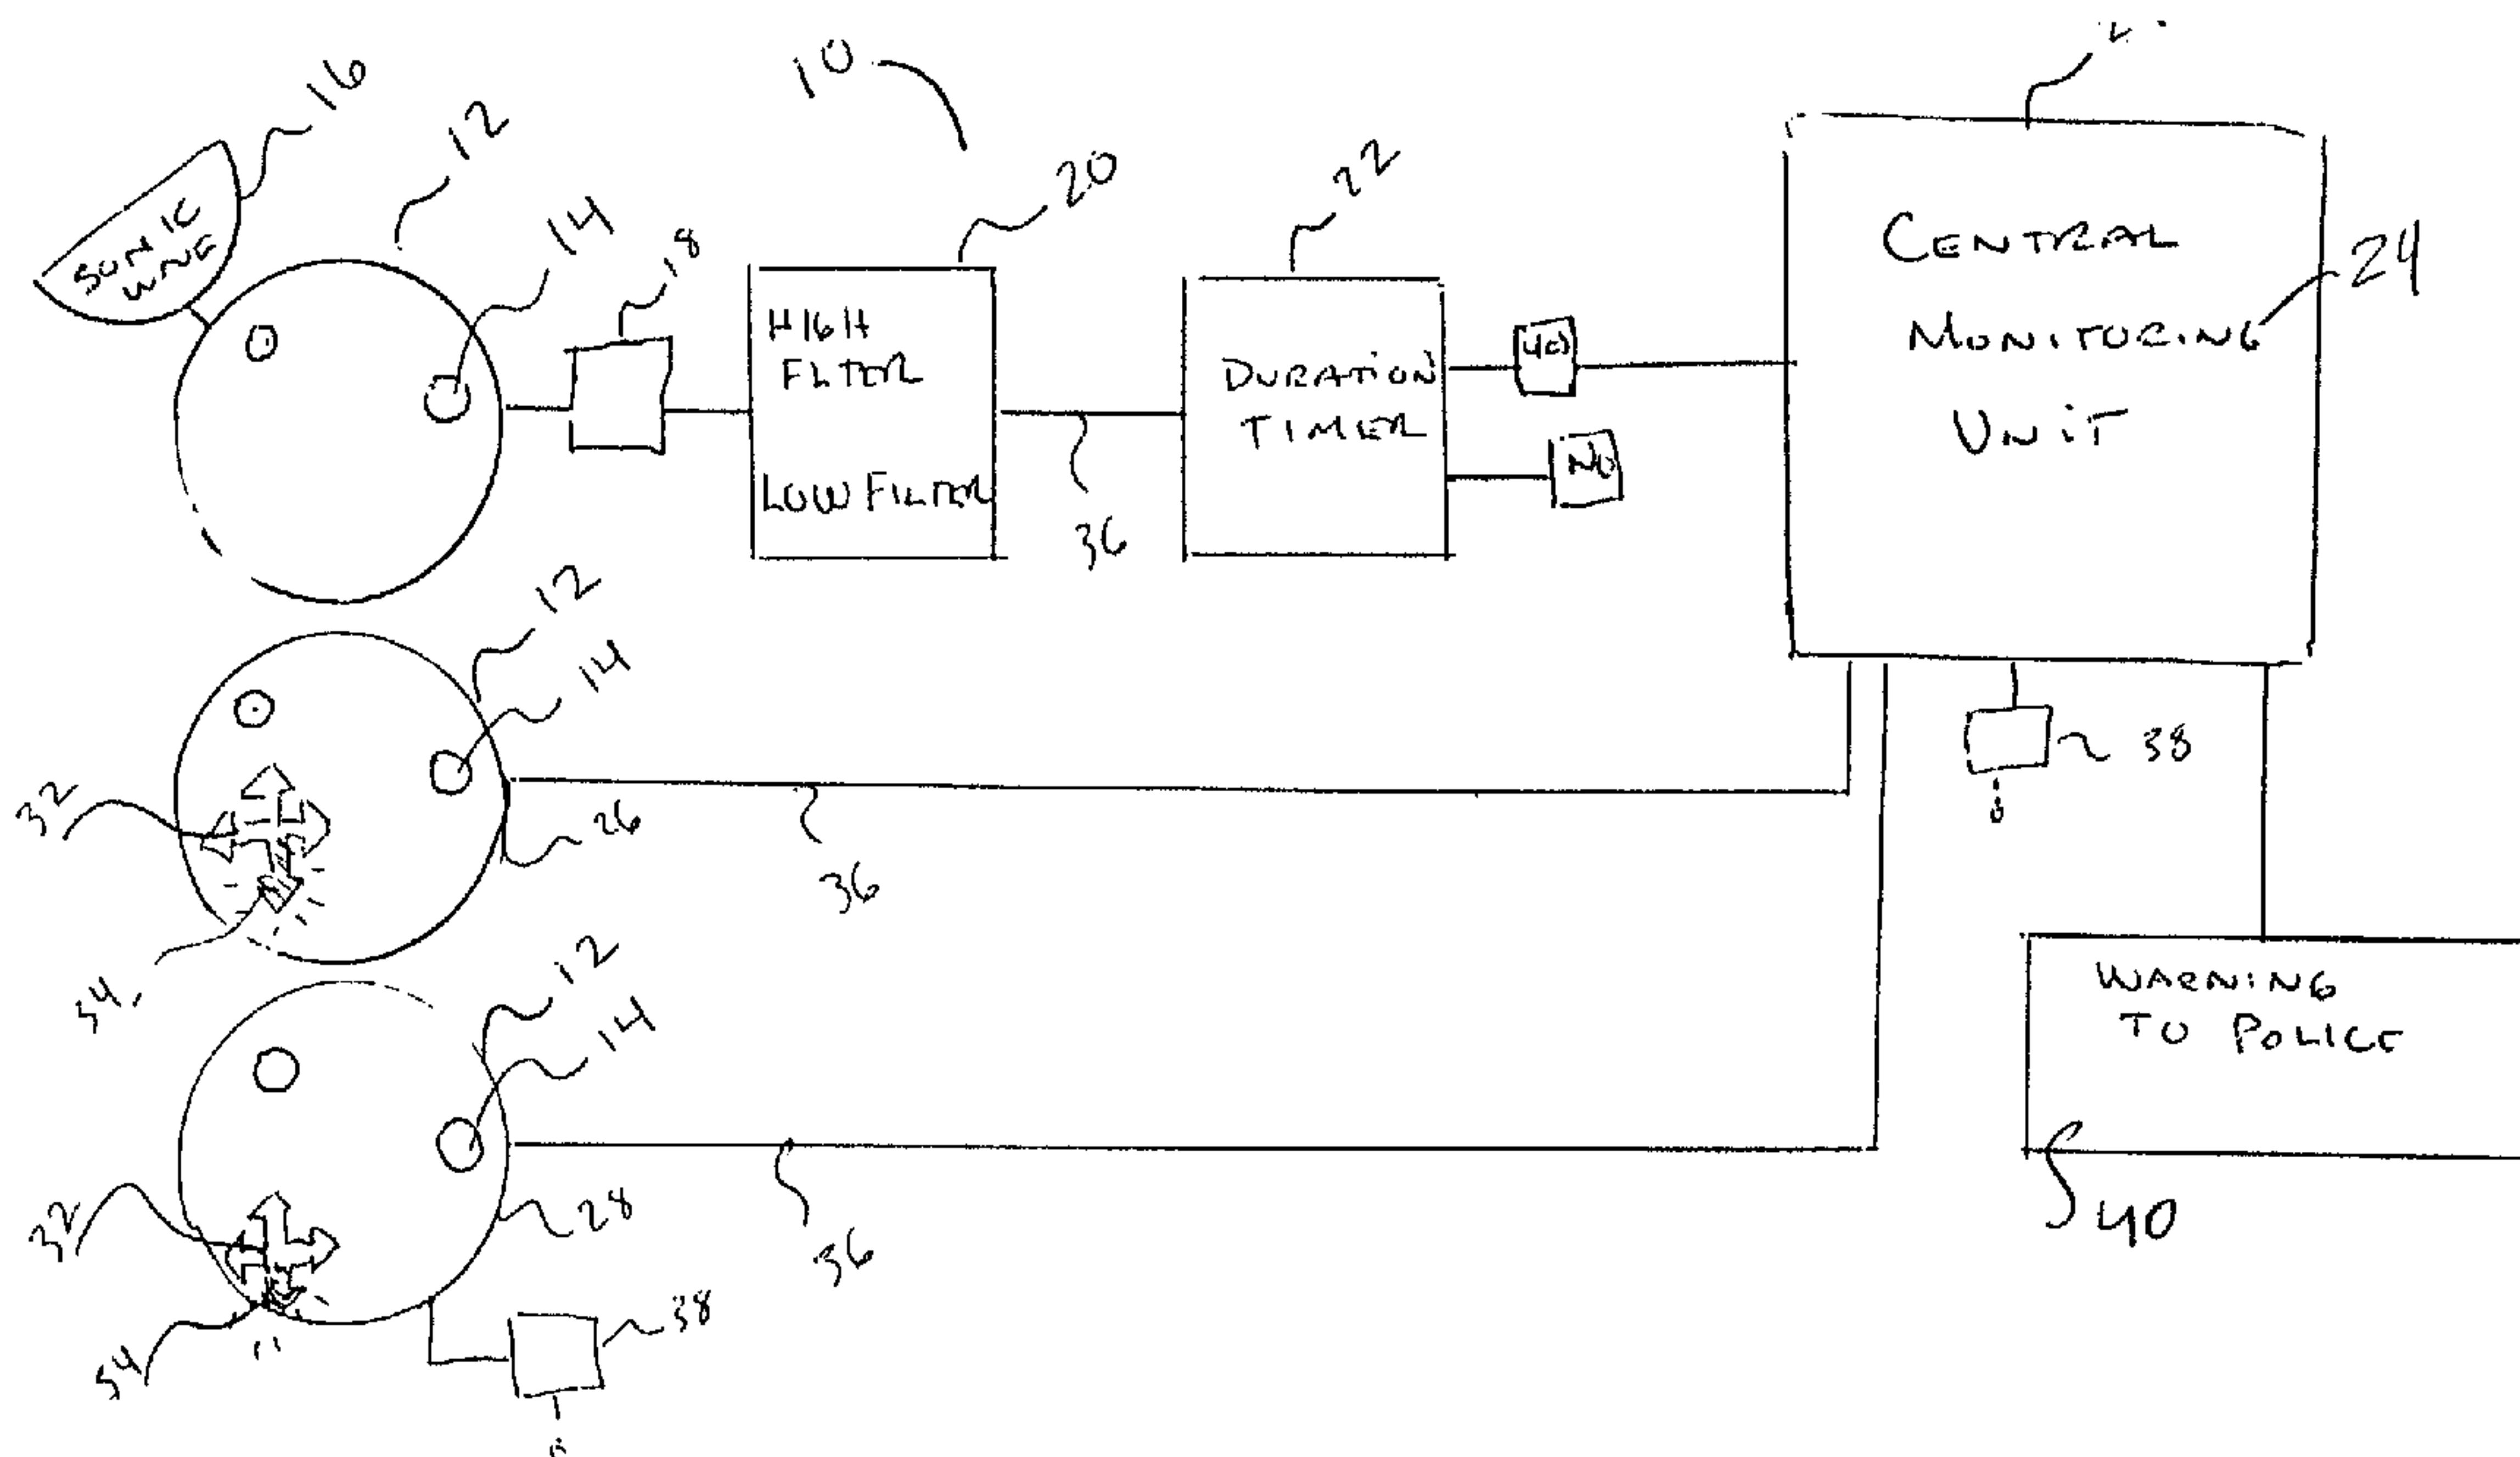 16
12
10
14
18
20
22
SONIC
WAVE
HIGH
FILTER
LOW FILTER
36
DURATION
TIMER
YES
NO
CENTRAL
MONITORING
UNIT
24
12
14
32
26
36
34
38
12
14
32
28
36
34
38
WARNING
TO POLICE
40